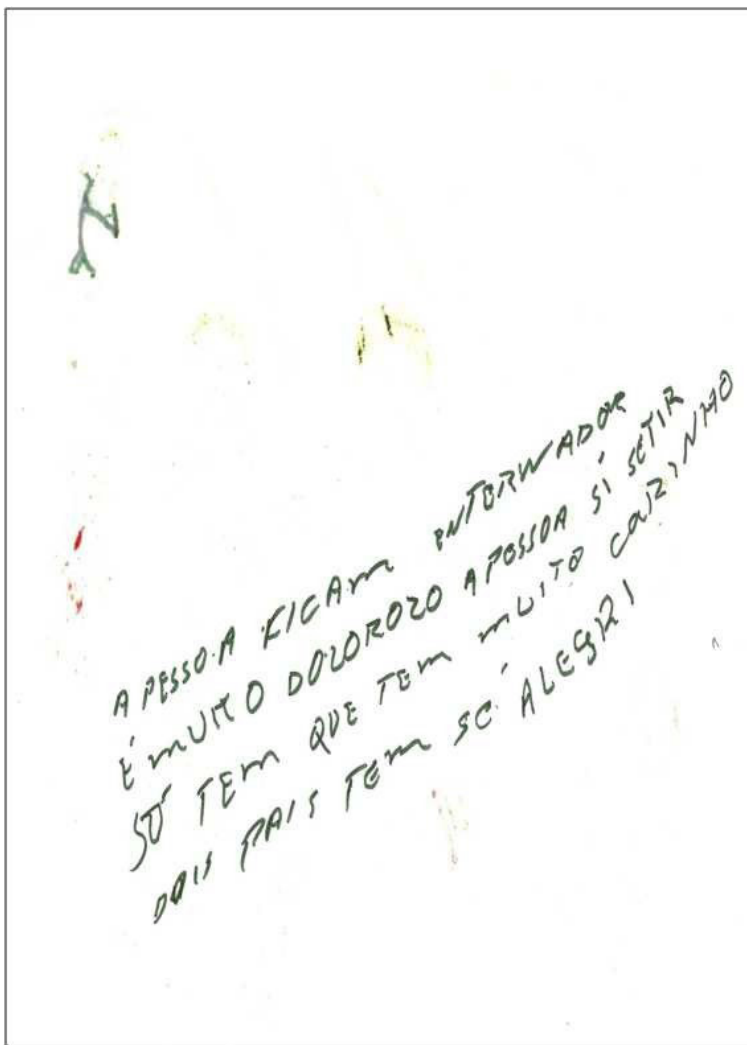 A PESSOA FICAM ENTERNADOR
É MUITO DOLOROZO A PESSOA SÍ SETIR
SÓ TEM QUE TEM MUITO CARINHO
DOIS PAIS TEM SC ALEGRI